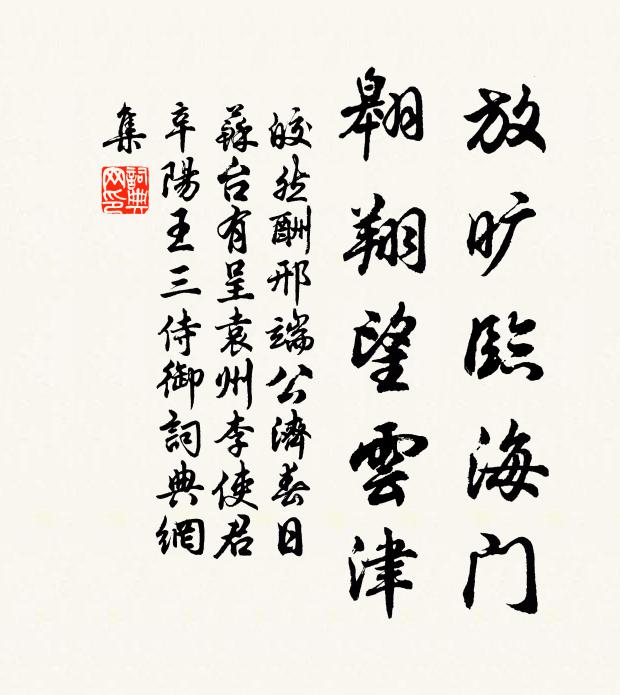 放旷臨海門
翱翔望雲津
皎然酬邢端公濟春日
蘇台有呈袁州李使君
辛陽王三侍御詞典網
集
詞典網印